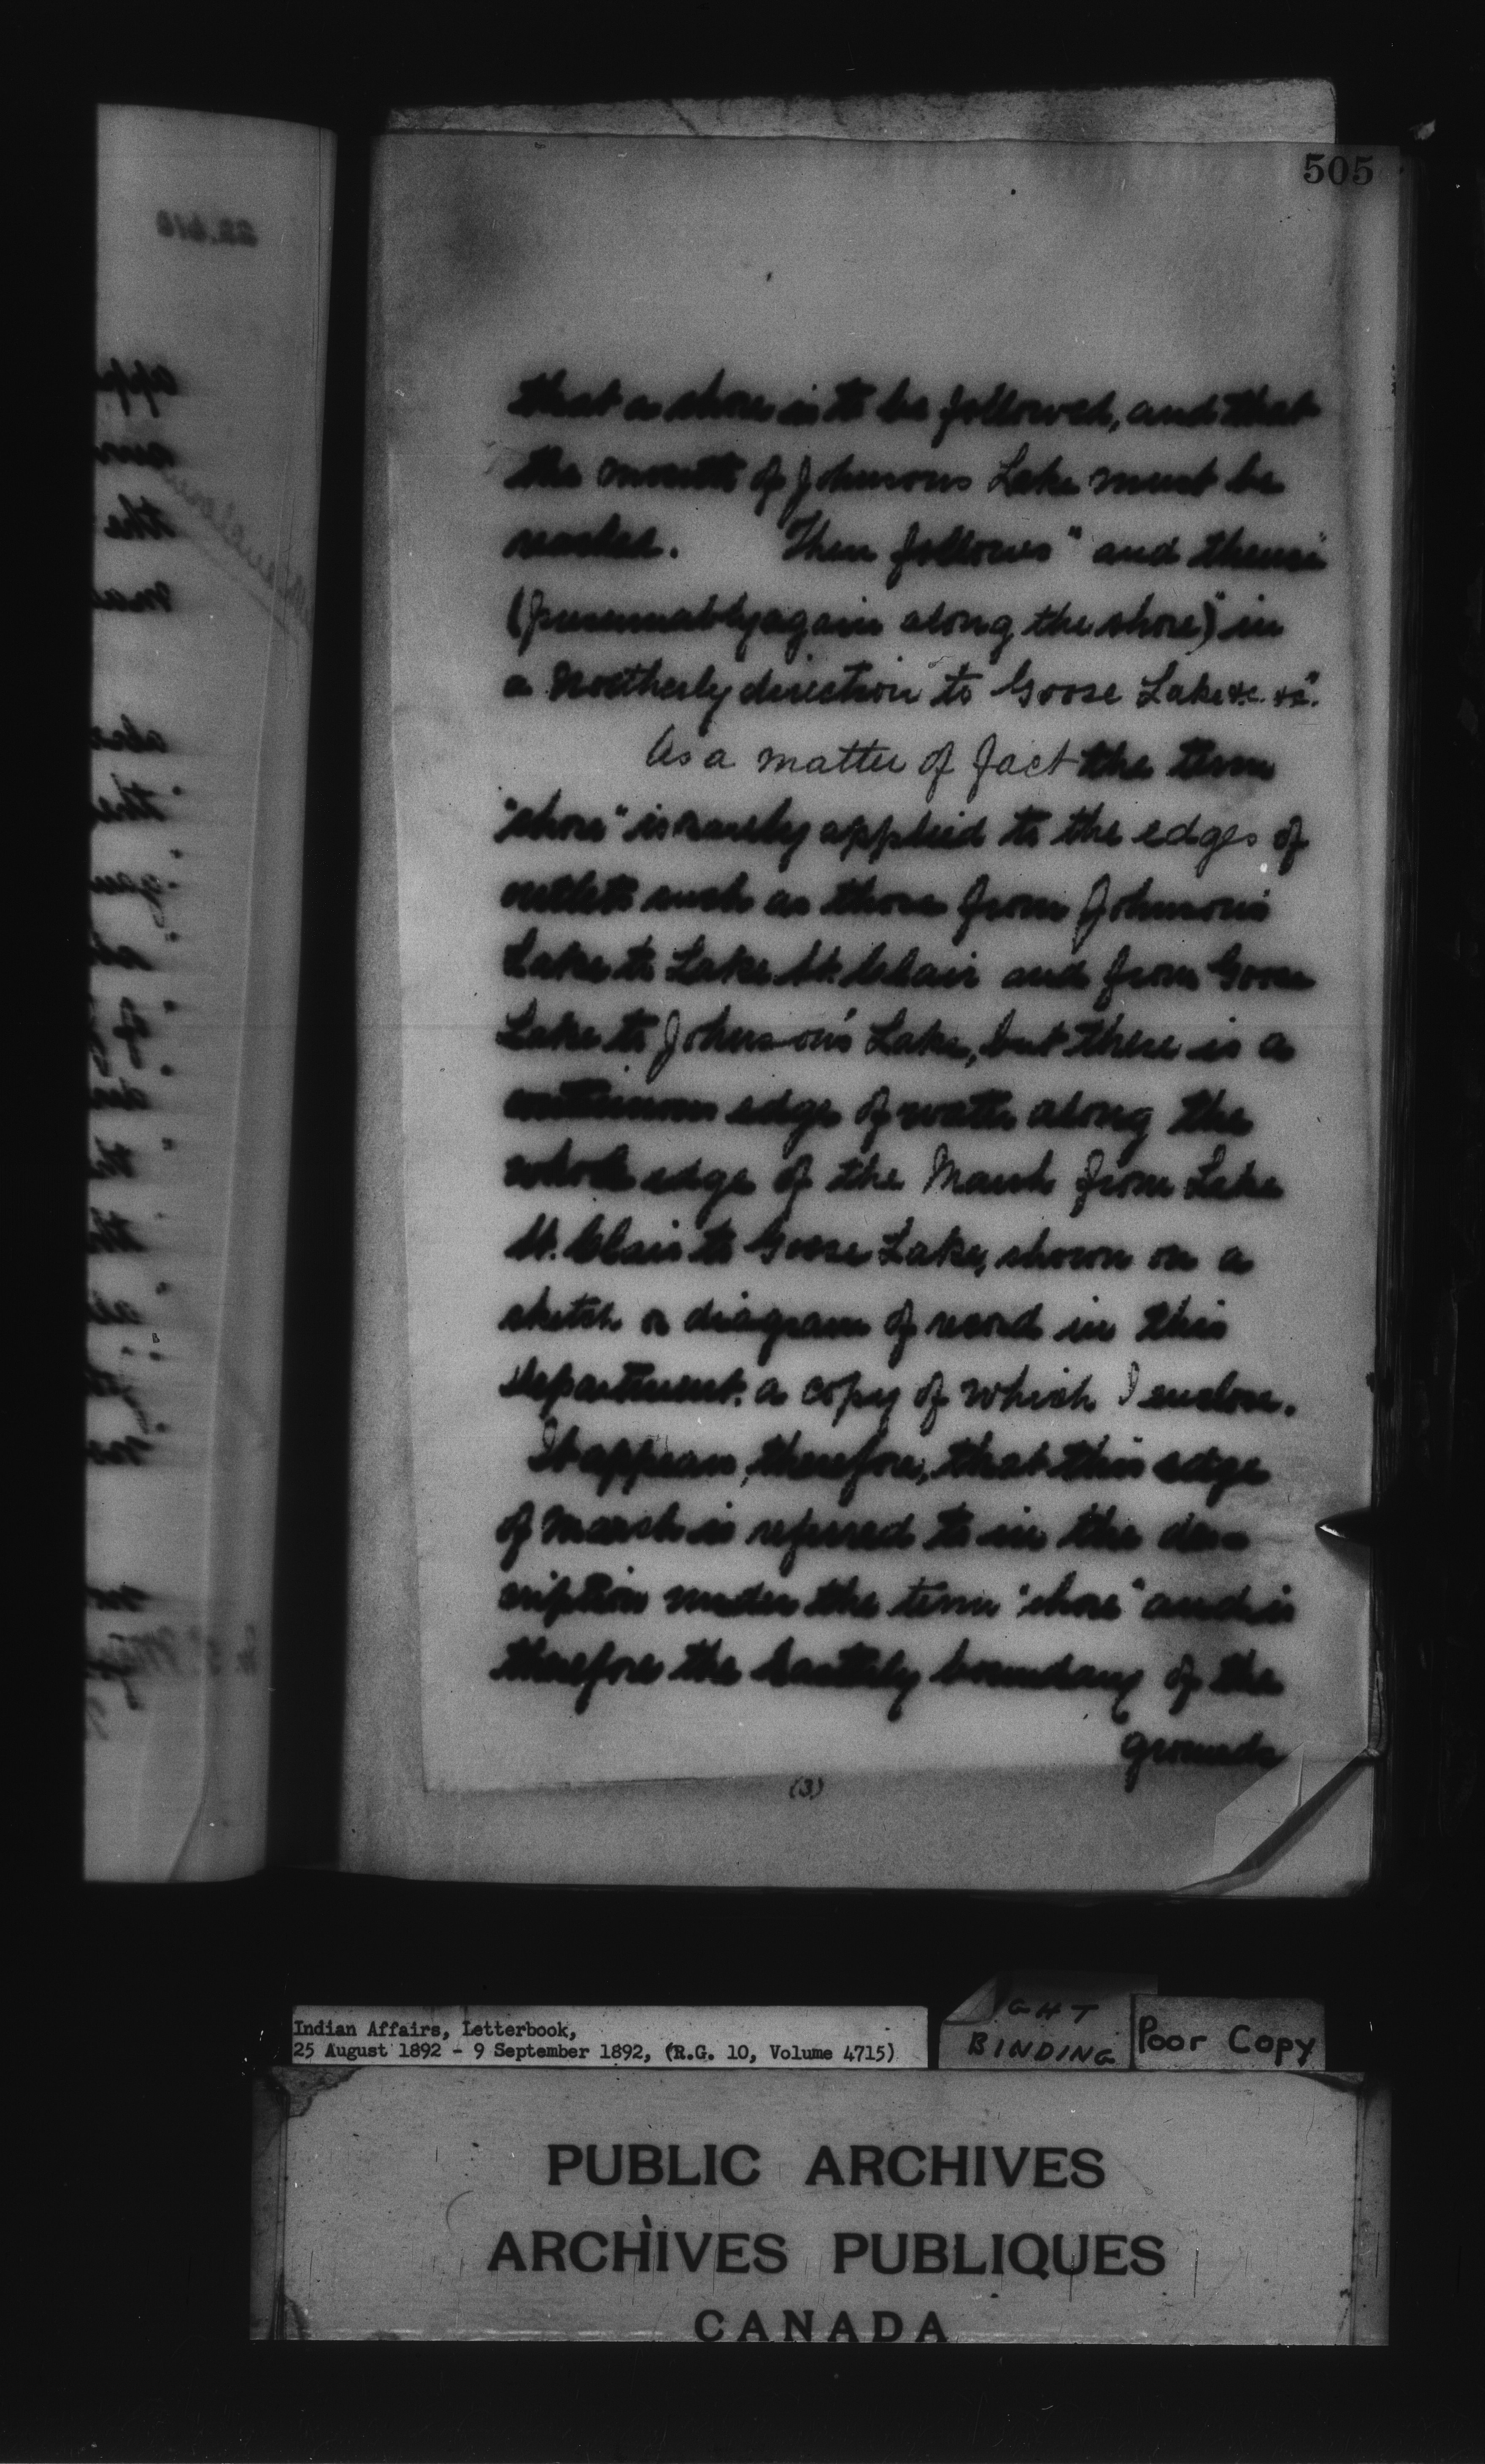 505
that a shore is to be followed, and that
the mouth of Johnsons Lake must be
reached. Then follows "and thence"
(presumably again along the shore) "in
a Northerly direction to Goose Lake &c. &c".
As a matter of fact the term
"shore" is rarely applied to the edges of
outlets such as those from Johnson's
Lake to Lake St. Clair and from Goose
Lake to Johnson's Lake, but there is a
continuous edge of water along the
whole edge of the Marsh from Lake
St. Clair to Goose Lake, shown on a
sketch or diagram of record in this
Department, a copy of which I enclose.
It appears, therefore, that this edge
of Marsh is referred to in the des-
cription under the term "shore" and is
therefore the Easterly boundary of the
grounds
(3)
Indian Affairs, Letterbook,
25 August 1892 - 9 September 1892, (R.G. 10, Volume 4715)
BINDING
Poor Copy
PUBLIC ARCHIVES
ARCHIVES PUBLIQUES
CANADA